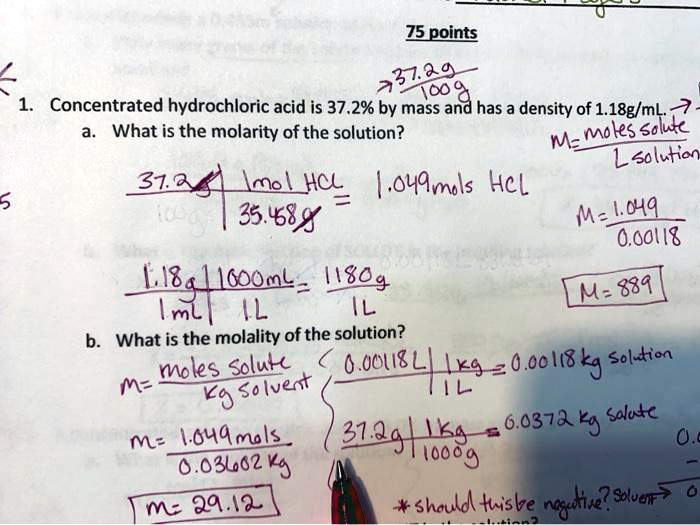 75 points
→37.2g
100g
1. Concentrated hydrochloric acid is 37.2% by mass and has a density of 1.18g/mL. →
a. What is the molarity of the solution?
M= moles solute
L solution
37.2g | 1mol HCl = 1.049mols HCl
35.458g
M= 1.049
0.00118
1.18g | 1000mL = 1180g
1mL | 1L 1L
M= 889
b. What is the molality of the solution?
m= moles solute
Kg solvent
0.00118L | 1kg = 0.00118 kg solution
1L
m= 1.049mols
0.03602 kg
37.2g | 1kg = 0.0372 kg solute
1000g
m= 29.12
* should this be negative? solvent →